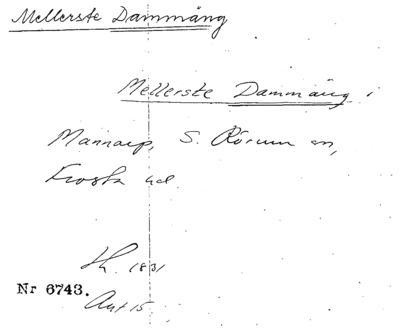 Mellerste Dammäng
Mellerste Dammäng i
Mannarp, S. Rörum sn,
Frosta hd.
Lh. 1831
Nr 6743.
Akt 15